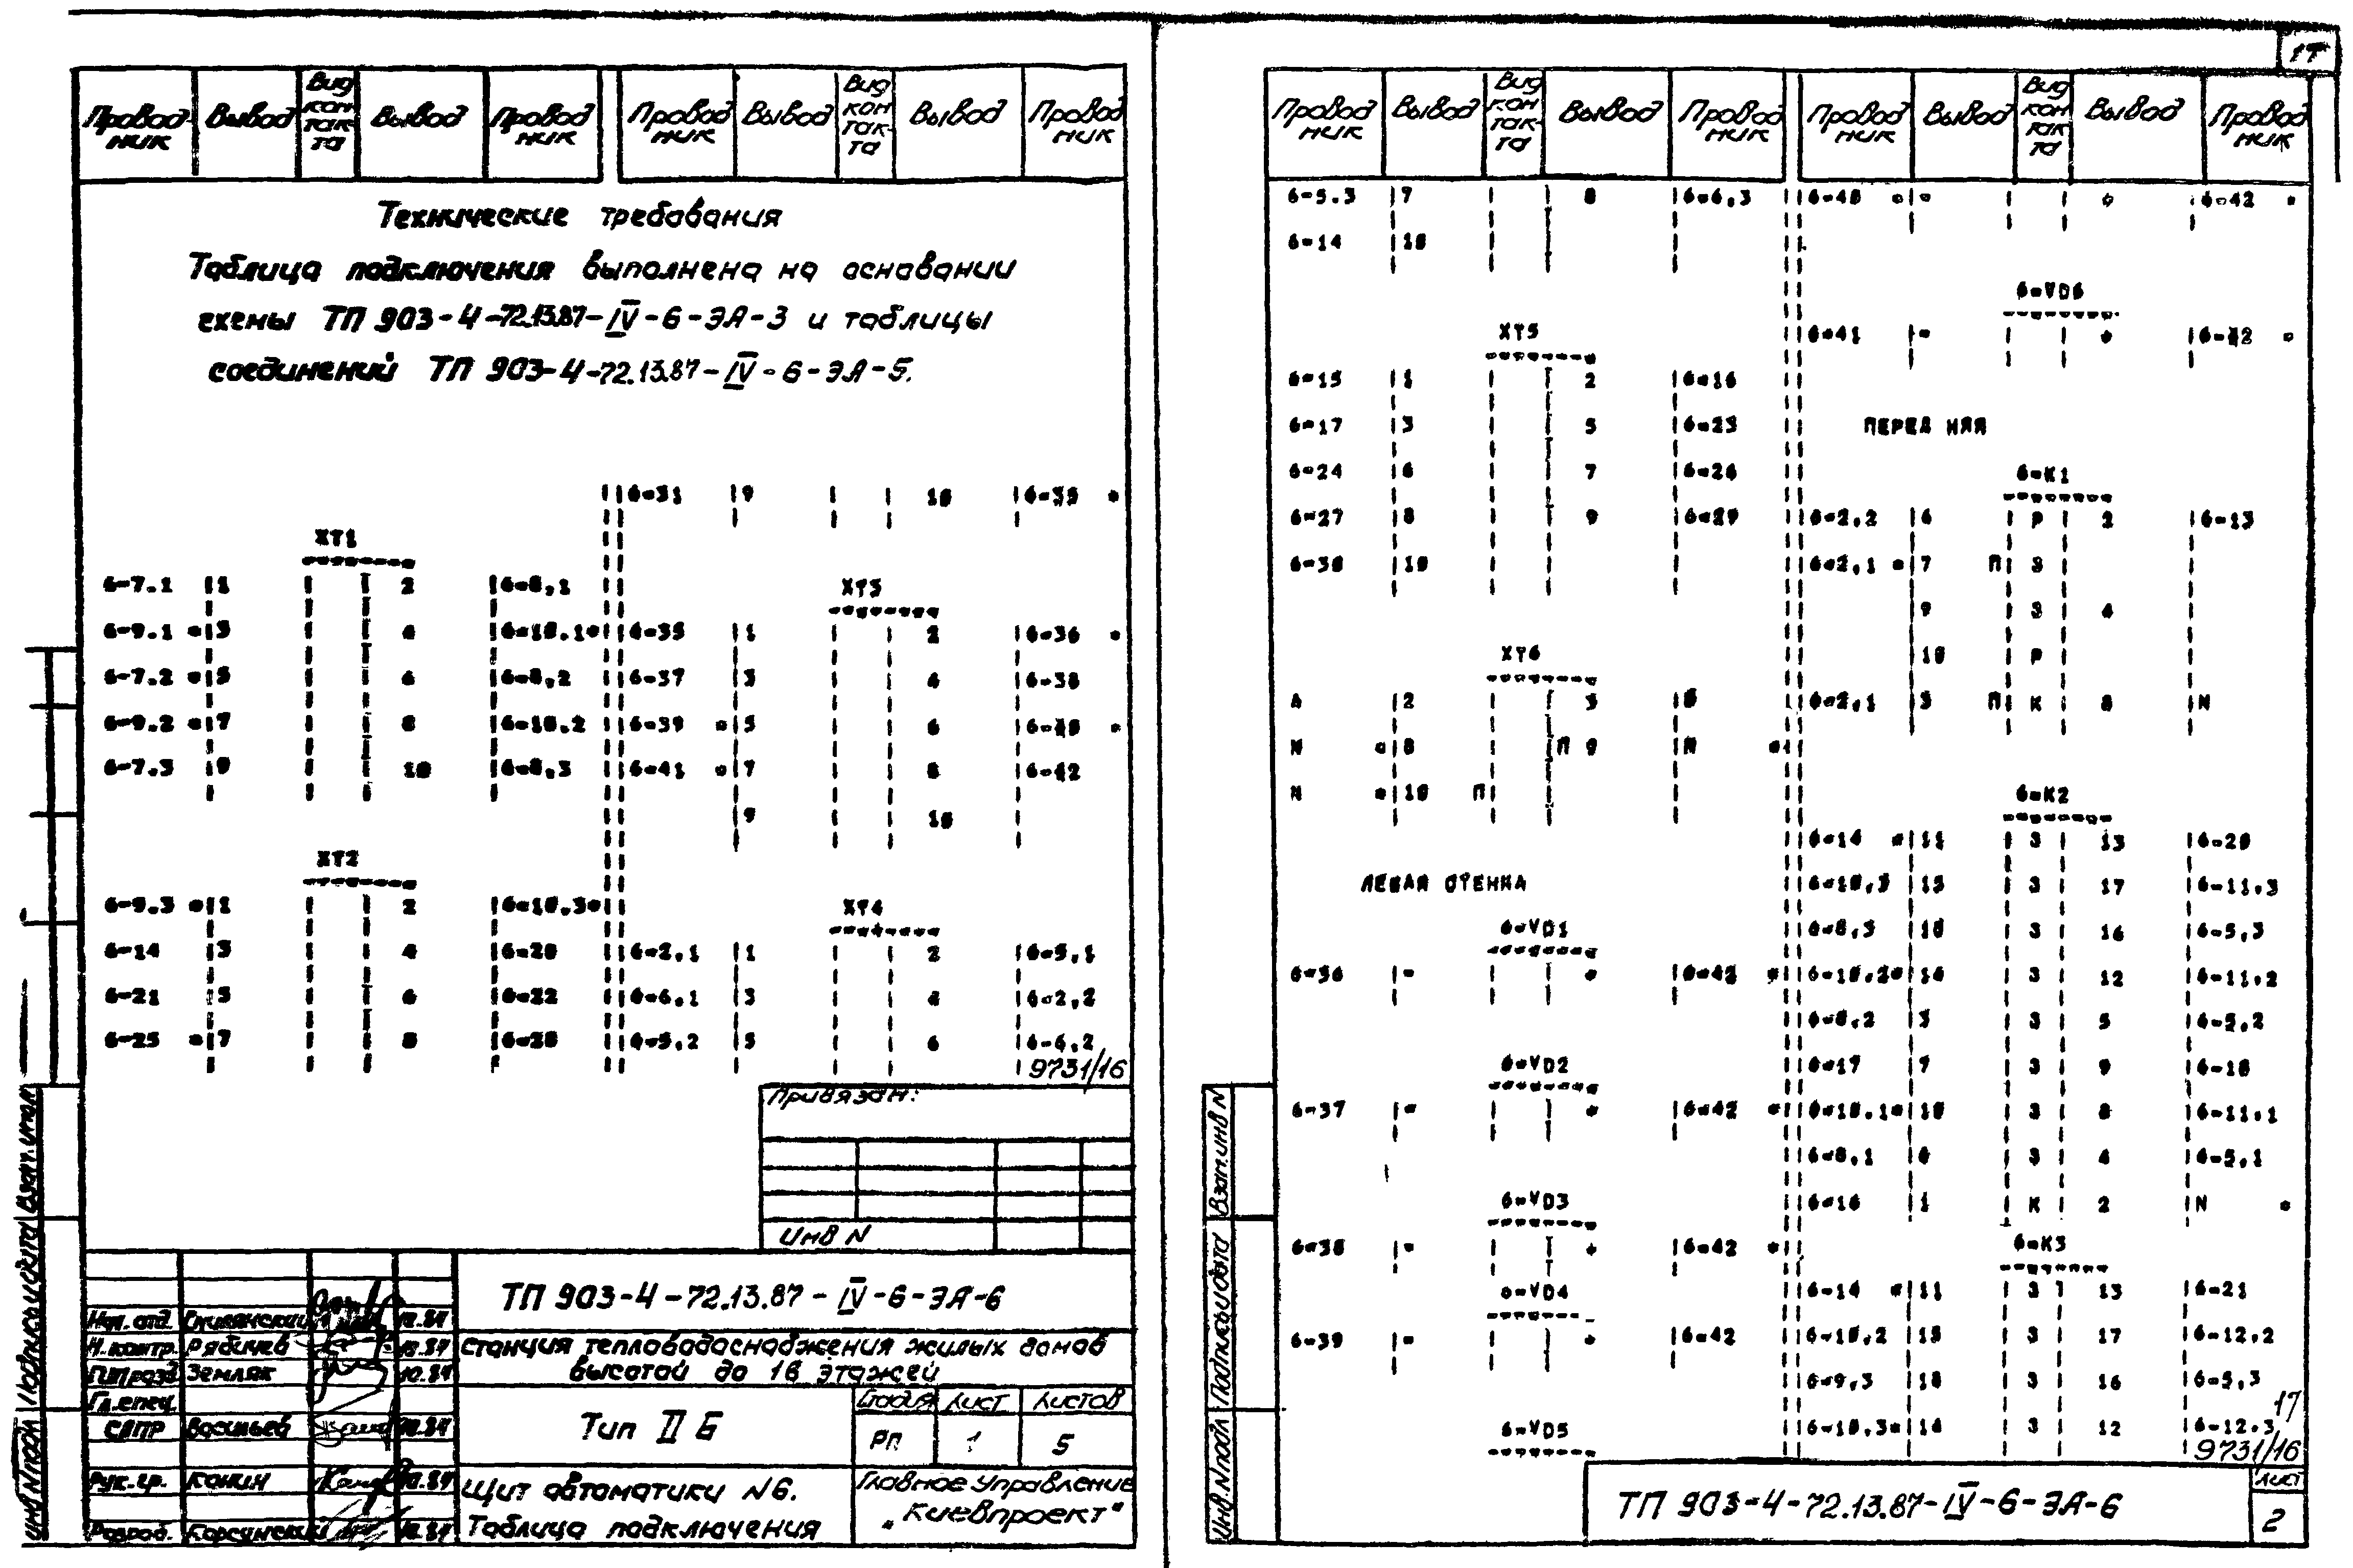 Проводник Вывод Вид контакта Вывод Проводник Проводник Вывод Вид контакта Вывод Проводник
Технические требования
Таблица подключения выполнена на основании
схемы ТП 903-4-72.13.87-IV-6-ЭА-3 и таблицы
соединений ТП 903-4-72.13.87-IV-6-ЭА-5.
XT1
6-7.1 1 2 6-8.1
6-9.1 * 3 4 6-10.1 *
6-7.2 * 5 6 6-8.2
6-9.2 * 7 8 6-10.2
6-7.3 9 10 6-8.3
XT2
6-9.3 * 1 2 6-10.3 *
6-14 3 4 6-20
6-21 5 6 6-22
6-25 * 7 8 6-28
6-31 9 10 6-35 *
XT3
6-35 1 2 6-36 *
6-37 3 4 6-38
6-39 * 5 6 6-40 *
6-41 * 7 8 6-42
9 10
XT4
6-2.1 1 2 6-5.1
6-6.1 3 4 6-2.2
6-5.2 5 6 6-6.2
9731/16
Привязан:
Инв N
ТП 903-4-72.13.87-IV-6-ЭА-6
Нач. отд. 10.87
Н. контр. Рябичев 10.87
Земляк 10.87
Гл. спец.
САПР Васильев 10.87
Рук. гр. Канин 10.87
Разраб. Корсунский 10.87
Станция тепловодоснабжения жилых домов
высотой до 16 этажей
Тип II Б
Стадия Лист Листов
РП 1 5
Щит автоматики N6.
Таблица подключения
Главное Управление
„Киевпроект"
Инв. N подл Подпись и дата Взам. инв N
17
Проводник Вывод Вид контакта Вывод Проводник Проводник Вывод Вид контакта Вывод Проводник
6-5.3 7 8 6-6.3
6-14 10
XT5
6-15 1 2 6-16
6-17 3 5 6-23
6-24 6 7 6-26
6-27 8 9 6-29
6-30 10
XT6
A 2 3
N * 8 П 9 N *
N * 10 П
ЛЕВАЯ СТЕНКА
6-VD1
6-36 - + 6-42 *
6-VD2
6-37 - + 6-42 *
6-VD3
6-38 - + 6-42 *
6-VD4
6-39 - + 6-42
6-VD5
6-40 * - + 6-42 *
6-VD6
6-41 - + 6-42 *
ПЕРЕДНЯЯ
6-K1
6-2.2 6 Р 2 6-13
6-2.1 * 7 П З
9 З 4
10 Р
6-2.1 3 П К 8 N
6-K2
6-14 * 11 З 13 6-20
6-10.3 15 З 17 6-11.3
6-8.3 18 З 16 6-5.3
6-10.2 * 14 З 12 6-11.2
6-8.2 3 З 5 6-5.2
6-17 7 З 9 6-18
6-10.1 * 10 З 8 6-11.1
6-8.1 6 З 4 6-5.1
6-16 1 К 2 N *
6-K3
6-14 * 11 З 13 6-21
6-10.2 15 З 17 6-12.2
6-9.3 18 З 16 6-5.3
6-10.3 * 14 З 12 6-12.3
17
9731/16
Инв. N подл Подпись и дата Взам. инв N
ТП 903-4-72.13.87-IV-6-ЭА-6
Лист
2